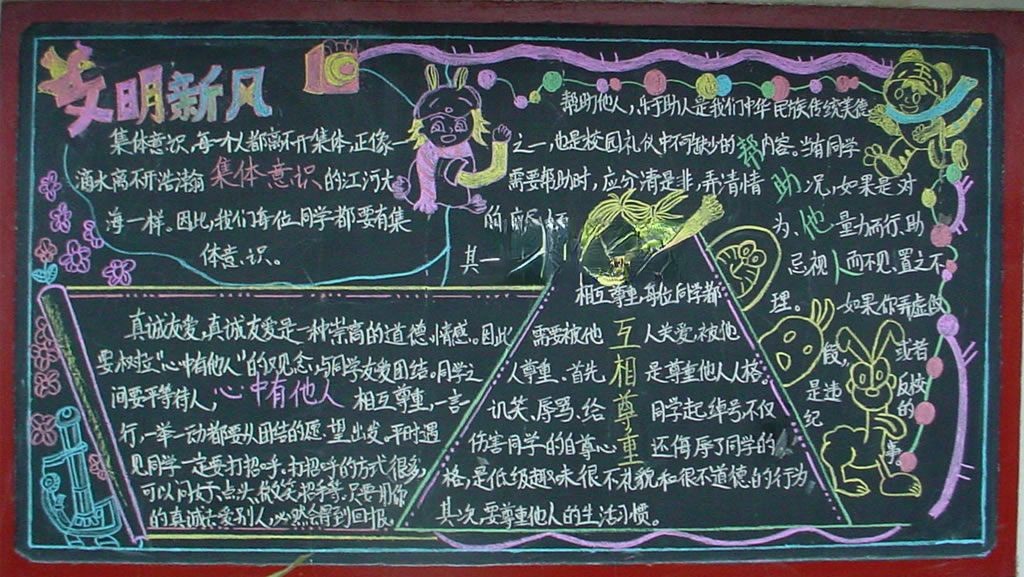 文明新风
集体意识,每一个人都离不开集体,正像一
滴水离不开浩瀚 集体意识的江河大
海一样。因此,我们每位同学都要有集
体意识。
帮助他人,乐于助人是我们中华民族传统美德
之一,也是校园礼仪中不可缺少的 内容。当有同学
需要帮助时,应分清是非,弄清情 况,如果是对
的
为、量力而行,助
其一
忌视人而不见、置之不
理。 如果你弄虚作
假, 或者
是违 反校
纪 的
事。
帮助他人
真诚友爱,真诚友爱是一种崇高的道德情感。因此
要树立“心中有他人”的观念,与同学友爱团结。同学之
间要平等待人,心中有他人 相互尊重,一言一
行,一举一动都要从团结的愿望出发。平时遇
见同学一定要打招呼,打招呼的方式很多,
可以问好、点头、微笑、招手等,只要用你
的真诚去爱别人,必然会得到回报。
相互尊重,每位同学都
需要被他 人关爱,被他
人尊重、首先 是尊重他人人格。
讥笑、辱骂、给 同学起绰号不仅
伤害同学的自尊心 还侮辱了同学的人
格,是低级趣味很不礼貌和很不道德的行为
其次,要尊重他人的生活习惯。
互相尊重